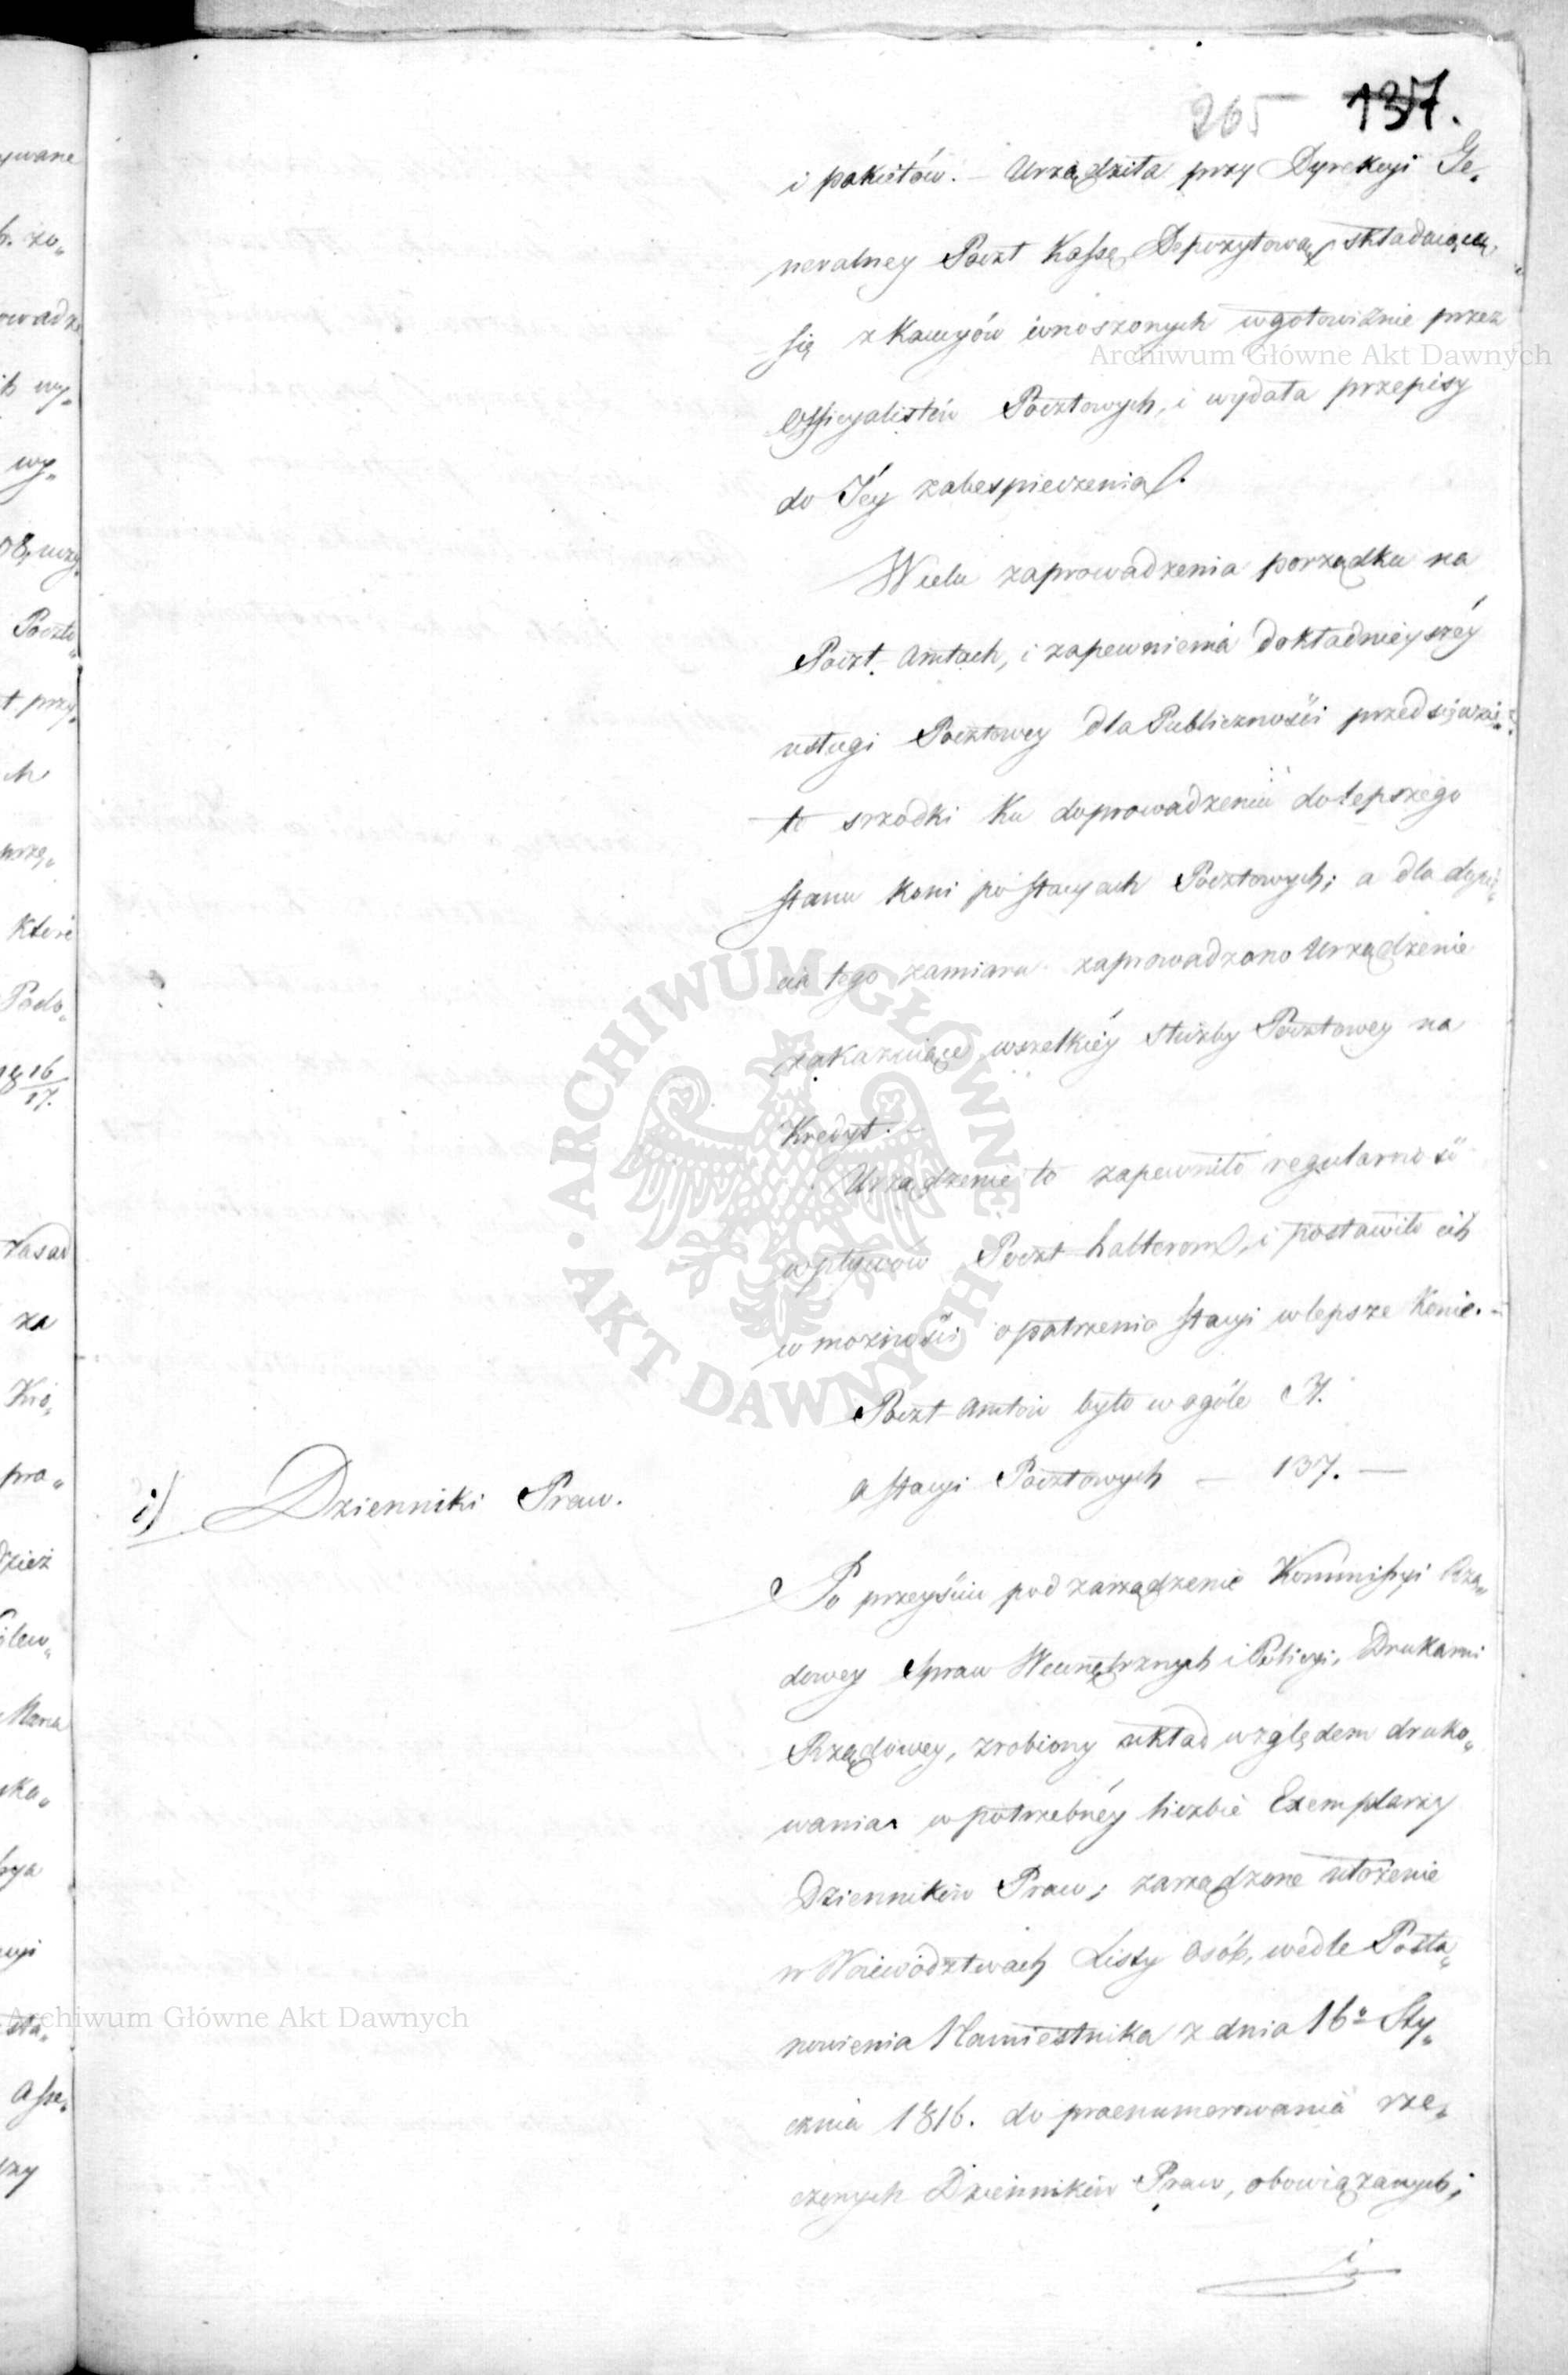 265 137.
i pakietów. – Urządziła przy Dyrekcyi Ge„
neralney Poczt Kassę Depozytową, składaiącą
się z Kaucyów wnoszonych w gotowiźnie przez
Officyalistów Pocztowych, i wydała przepisy
do Jéy zabespieczenia.
W celu zaprowadzenia porządku na
Poczt-Amtach, i zapewnienia dokładnieyszéy
usługi Pocztowey dla Publiczności przedsięwzię„
to srzodki ku doprowadzeniu do lepszego
stanu koni po stacyach Pocztowych; a dla dopię„
cia tego zamiaru zaprowadzono Urządzenie
zakazuiące wszelkiéy służby Pocztowey na
Kredyt. –
Urządzenie to zapewniło regularność
wpływów Poczt-halterom, i postawiło ich
w możności opatrzenia stacyi w lepsze Konie. –
Poczt-Amtów było w ogóle 7.
a stacyi Pocztowych – 137. –
i) Dzienniki Praw.
Po przeyściu pod zarządzenie Kommissyi Rzą„
dowey Spraw Wewnętrznych i Policyi, Drukarni
Rządowey, zrobiony układ względem druko„
wania w potrzebnéy liczbie Exemplarzy
Dzienników Praw; zarządzone ułożenie
w Woiewództwach Listy osób, wedle Posta„
nowienia Namiestnika z dnia 16º Sty„
cznia 1816. do praenumerowania rze„
czonych Dzienników Praw, obowiązanych;
i
ywane
b. zo„
owadze
ih wy„
wy„
Poczto„
t przy„
ch
przę„
które
Podo„
16
17.
zasad
za
Kró„
pra„
dzież
Marca
ska„
sta„
Asse„
Archiwum Główne Akt Dawnych
Archiwum Główne Akt Dawnych
ARCHIWUM GŁÓWNE AKT DAWNYCH